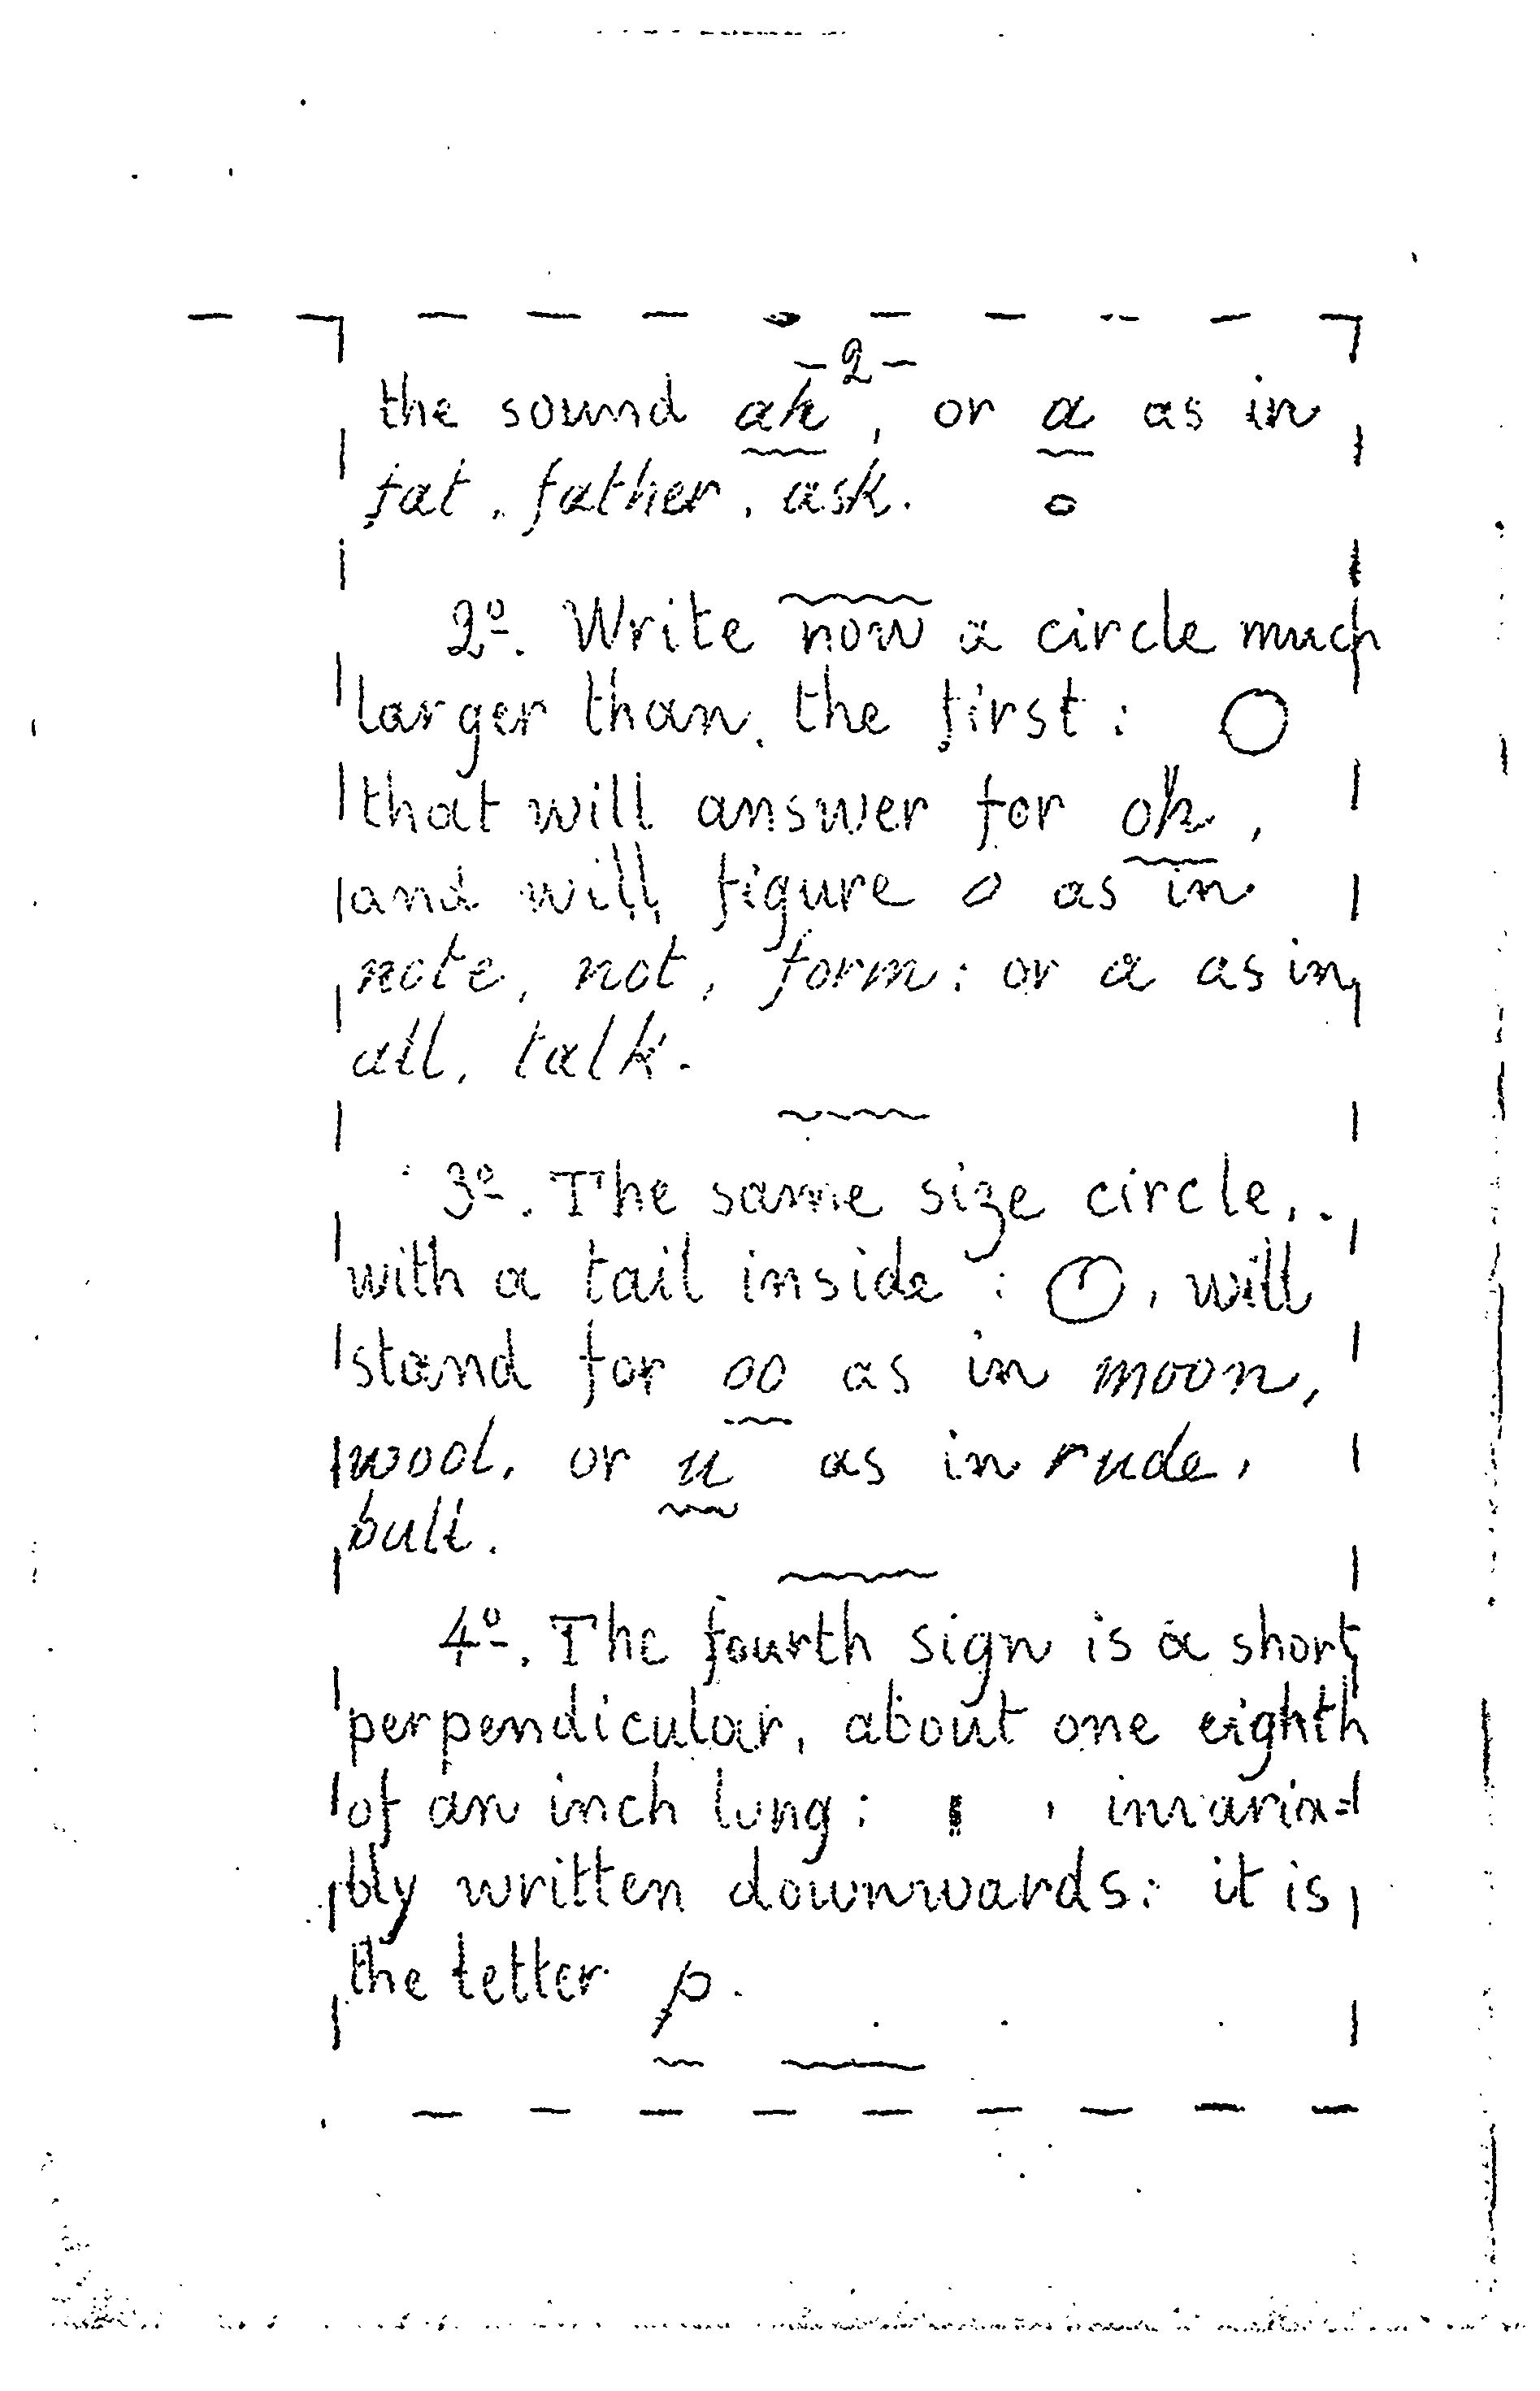 -2-
the sound ah, or a as in
fat, father, ask. o
2º. Write now a circle much
larger than the first: O
that will answer for oh,
and will figure o as in
note, not, form: or a as in
all, talk.
3º. The same size circle,
with a tail inside: , will
stand for oo as in moon,
wool, or u as in rude,
bull.
4º. The fourth sign is a short
perpendicular, about one eighth
of an inch long: ı , invaria=
bly written downwards: it is
the letter p.